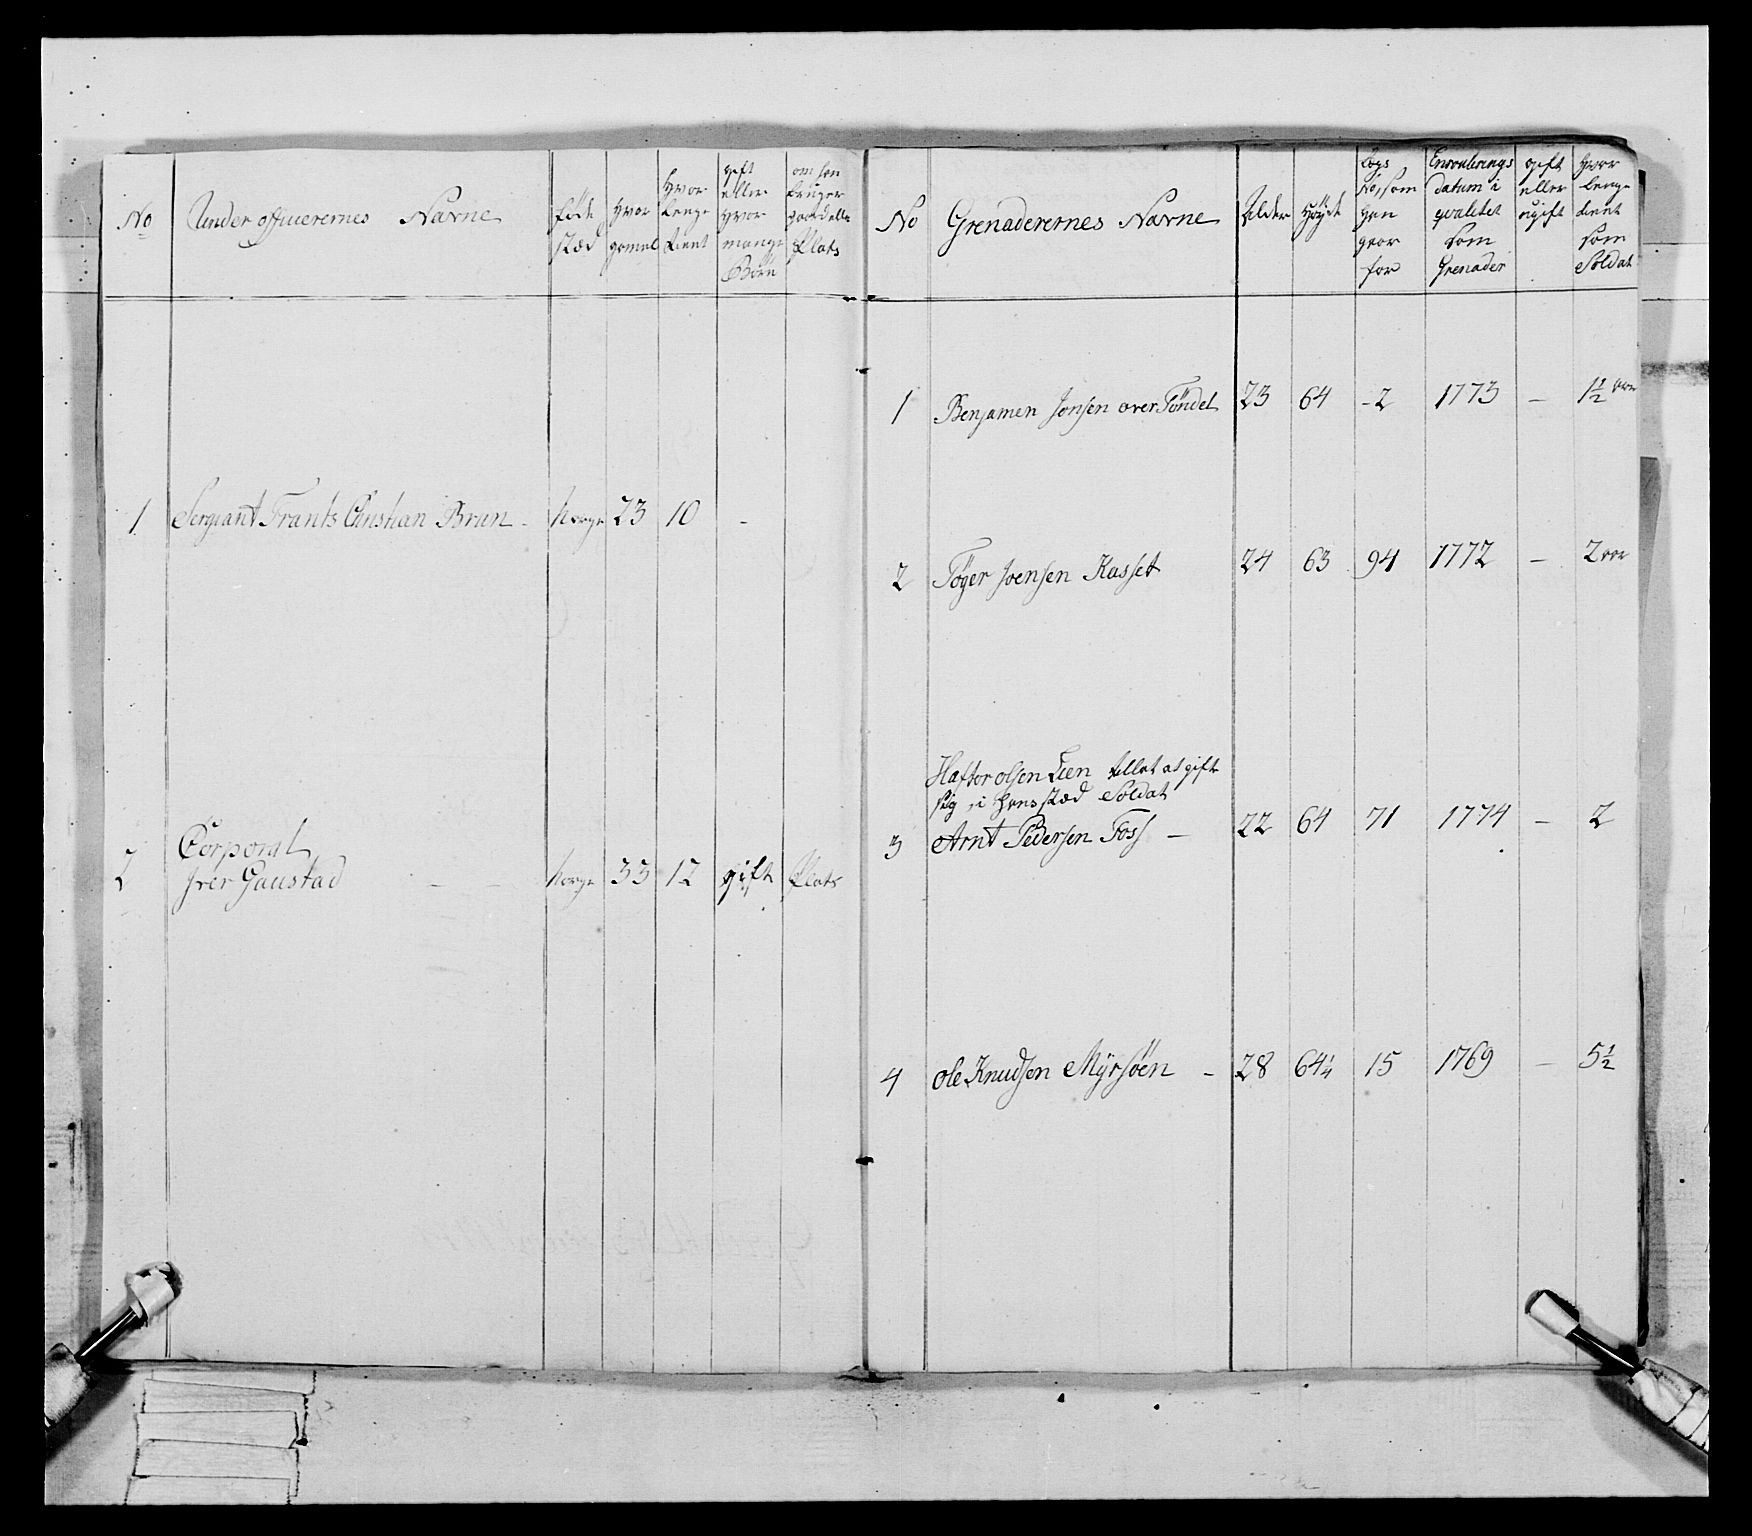 No
Under officerernes Navne
føde stæd
hvor gamel
hvor lenge tient
gift eller hvor mange Børn
om han bruger gaard eller Plats
1 Sergiant Frants Christian Brun - Norge 23 10 -
2 Corporal
Iver Gaustad - - Norge 33 12 gift Plats
No
Grenaderernes Navne
Alder
Høyde
Lægs No, som han giør for
Enroulerings datum i qvalitet som Grenader
gift eller ugift
hvor lenge tient som Soldat
1 Benjamen Jonsen over Töndel 23 64 -2 1773 - 1½ aar
2 Töger Joensen Kasset 24 63 94 1772 - 2 aar
Haftor olsen Lien gift
sig, i hans stæd Soldat
3 Arnt Pedersen Foss - 22 64 71 1774 - 2
4 Ole Knudsen Myrsöen - 28 64¼ 15 1769 - 5½